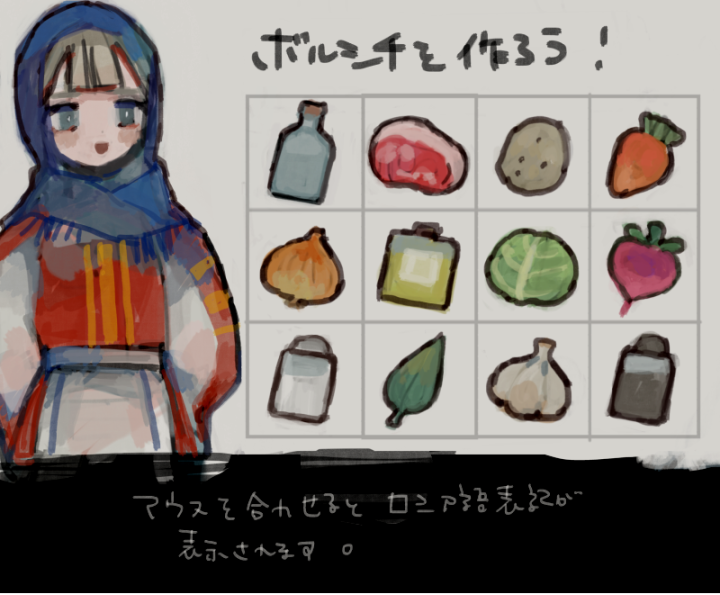 ボルシチを作ろう!
マウスを合わせると ロシア語表記が
表示されます。